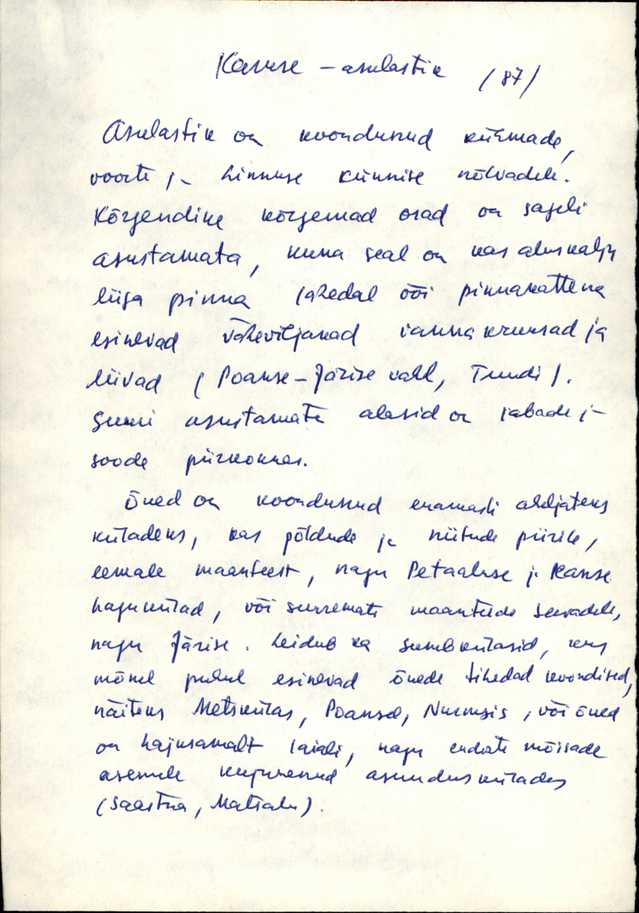 Karuse – asulastik (87)
Asulastik on koondunud küürmade,
voorte j- Linnuse künnise nõlvadele.
Kõrgendike kõrgemad osad on sageli
asustamata, kuna seal on kas aluskalju
liiga pinna lähedal või pinnakattena
esinevad väheviljakad rannakruusad ja
liivad (Poanse–Järise vall, Tuudi).
Suuri asustamata alasid on rabade j-
soode piirkonnas.
Õued on koondunud enamasti aheljateks
küladeks, kas põldude ja niitude piirile,
eemale maanteest, nagu Petaaluse j- Ranse
hajukülad, või suuremate maanteede servadele,
nagu Järise. Leidub ka sumbkülasid, kus
mõnel puhul esinevad õuede tihedad koondised,
näiteks Metskülas, Poansel, Nurmsis, või õued
on hajusamalt laiali, nagu endiste mõisade
asemele kujunenud asunduskülades
(Saastna, Matsalu).